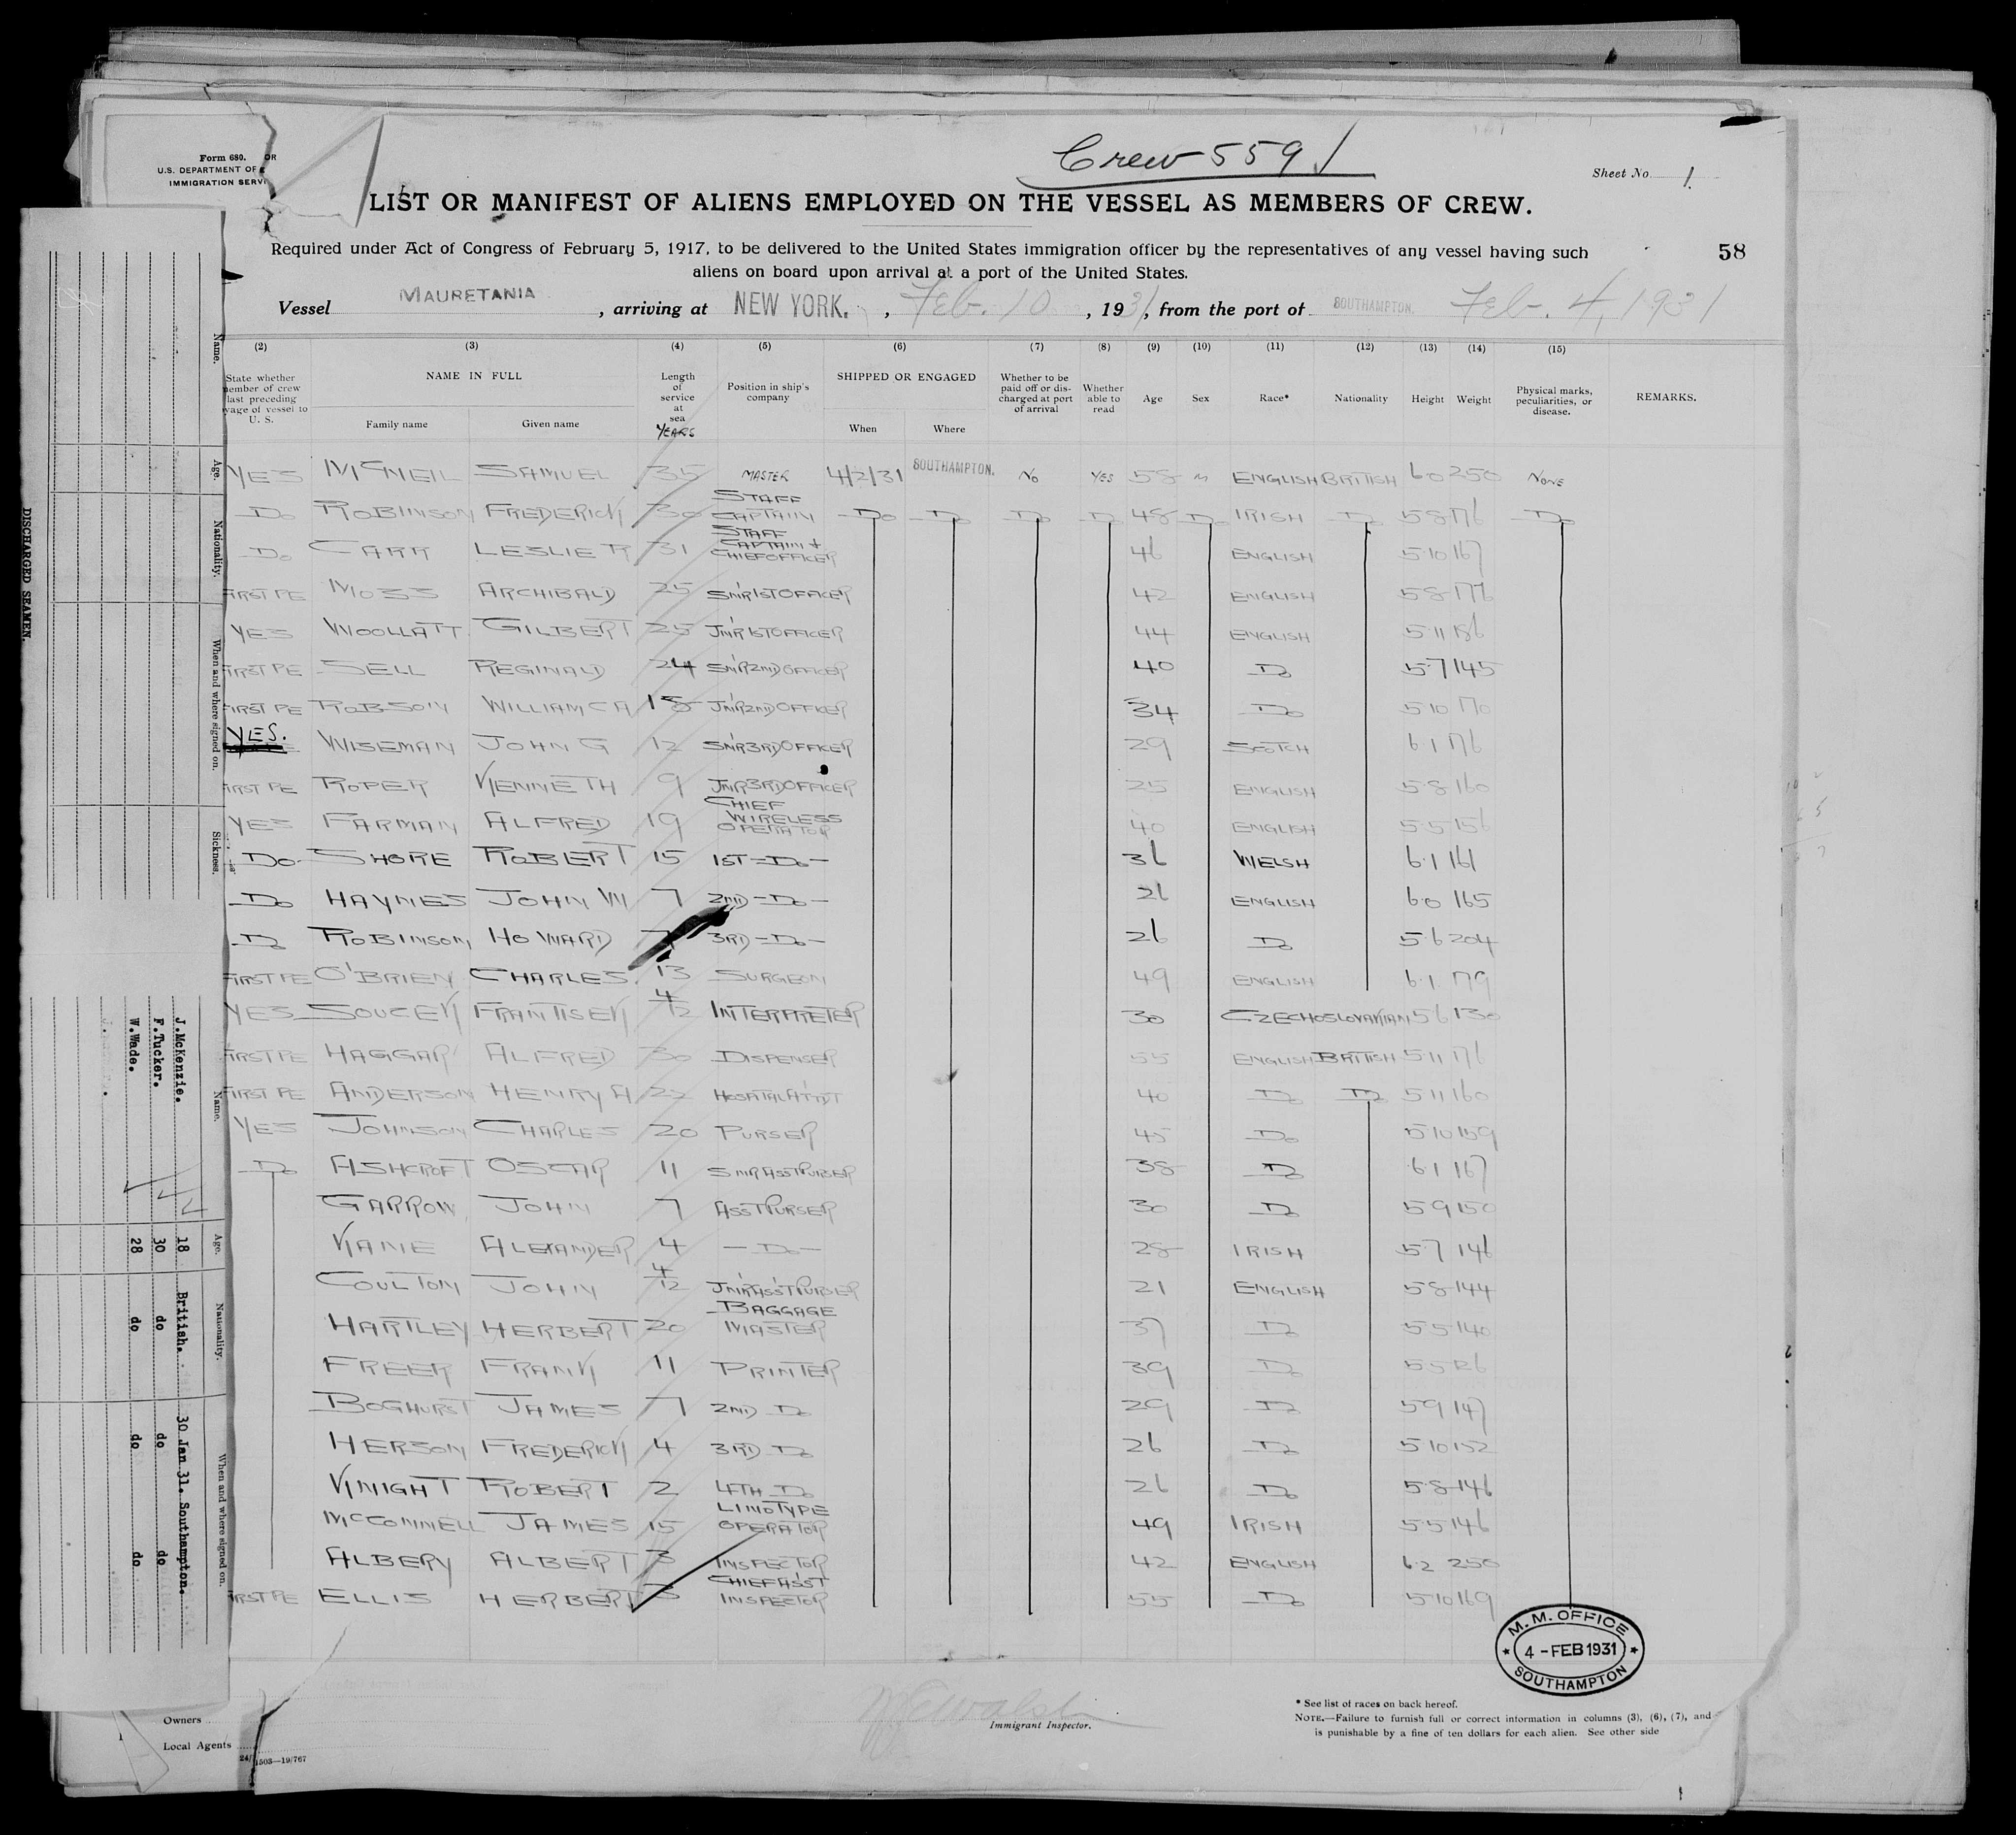 Crew 559 /
Form 680.
U.S. DEPARTMENT OF
IMMIGRATION SERVI
Sheet No. 1.
LIST OR MANIFEST OF ALIENS EMPLOYED ON THE VESSEL AS MEMBERS OF CREW.
Required under Act of Congress of February 5, 1917, to be delivered to the United States immigration officer by the representatives of any vessel having such
aliens on board upon arrival at a port of the United States.
58
Vessel MAURETANIA, arriving at NEW YORK., Feb. 10, 1931, from the port of SOUTHAMPTON. Feb. 4, 1931
(2) (3) (4) (5) (6) (7) (8) (9) (10) (11) (12) (13) (14) (15)
State whether member of crew last preceding voyage of vessel to U. S. NAME IN FULL Family name Given name Length of service at sea YEARS Position in ship's company SHIPPED OR ENGAGED When Where Whether to be paid off or discharged at port of arrival Whether able to read Age Sex Race* Nationality Height Weight Physical marks, peculiarities, or disease. REMARKS.
YES McNEIL SAMUEL 35 MASTER 4/2/31 SOUTHAMPTON. NO YES 58 M ENGLISH BRITISH 6 0 250 NONE
DO ROBINSON FREDERICK 30 STAFF CAPTAIN DO DO DO DO 48 DO IRISH DO 5 8 176 DO
DO CARR LESLIE R 31 STAFF CAPTAIN + CHIEF OFFICER 46 ENGLISH 5 10 167
FIRST PE MOSS ARCHIBALD 25 SNR 1ST OFFICER 42 ENGLISH 5 8 176
YES WOOLLATT GILBERT 25 JNR 1ST OFFICER 44 ENGLISH 5 11 186
FIRST PE SELL REGINALD 24 SNR 2ND OFFICER 40 DO 5 7 145
FIRST PE ROBSON WILLIAM C A 18 JNR 2ND OFFICER 34 DO 5 10 170
YES. WISEMAN JOHN G 12 SNR 3RD OFFICER 29 SCOTCH 6 1 176
FIRST PE ROPER KENNETH 9 JNR 3RD OFFICER 25 ENGLISH 5 8 160
YES FARMAN ALFRED 19 CHIEF WIRELESS OPERATOR 40 ENGLISH 5 5 156
DO SHORE ROBERT 15 1ST - DO - 36 WELSH 6 1 161
DO HAYNES JOHN W 7 2ND - DO - 26 ENGLISH 6 0 165
DO ROBINSON HOWARD 7 3RD - DO - 26 DO 5 6 204
FIRST PE O'BRIEN CHARLES. 13 SURGEON 49 ENGLISH 6 1 179
YES SOUCEK FRANTISEK 4/12 INTERPRETER 30 CZECHOSLOVAKIAN 5 6 130
FIRST PE HAGGAR ALFRED 30 DISPENSER 55 ENGLISH BRITISH 5 11 176
FIRST PE ANDERSON HENRY A 22 HOSPITAL ATTDT 40 DO DO 5 11 160
YES JOHNSON CHARLES 20 PURSER 45 DO 5 10 159
DO ASHCROFT OSCAR 11 SNR ASST PURSER 38 DO 6 1 167
GARROW JOHN 7 ASST PURSER 30 DO 5 9 150
KANE ALEXANDER 4 - DO - 28 IRISH 5 7 146
COULTON JOHN 4/12 JNR ASST PURSER 21 ENGLISH 5 8 144
HARTLEY HERBERT 20 BAGGAGE MASTER 37 DO 5 5 140
FREER FRANK 11 PRINTER 39 DO 5 5 126
BOGHURST JAMES 7 2ND DO 29 DO 5 9 147
HERSON FREDERICK 4 3RD DO 26 DO 5 10 152
KNIGHT ROBERT 2 4TH DO 26 DO 5 8 146
McCONNELL JAMES 15 LINOTYPE OPERATOR 49 IRISH 5 5 146
ALBERY ALBERT 3 INSPECTOR 42 ENGLISH 6 2 250
FIRST PE ELLIS HERBERT 3 CHIEF ASST INSPECTOR 55 DO 5 10 169
M. M. OFFICE
4 - FEB 1931
SOUTHAMPTON
Immigrant Inspector.
* See list of races on back hereof.
NOTE.—Failure to furnish full or correct information in columns (3), (6), (7), and
is punishable by a fine of ten dollars for each alien. See other side
Owners
Local Agents
1503—19/767
DISCHARGED SEAMEN.
Name. Age. Nationality. When and where signed on. Sickness.
Name. Age. Nationality. When and where signed on.
J. McKenzie. 18 British. 30 Jan 31. Southampton.
F. Tucker. 30 do do do
W. Wade. 28 do do do